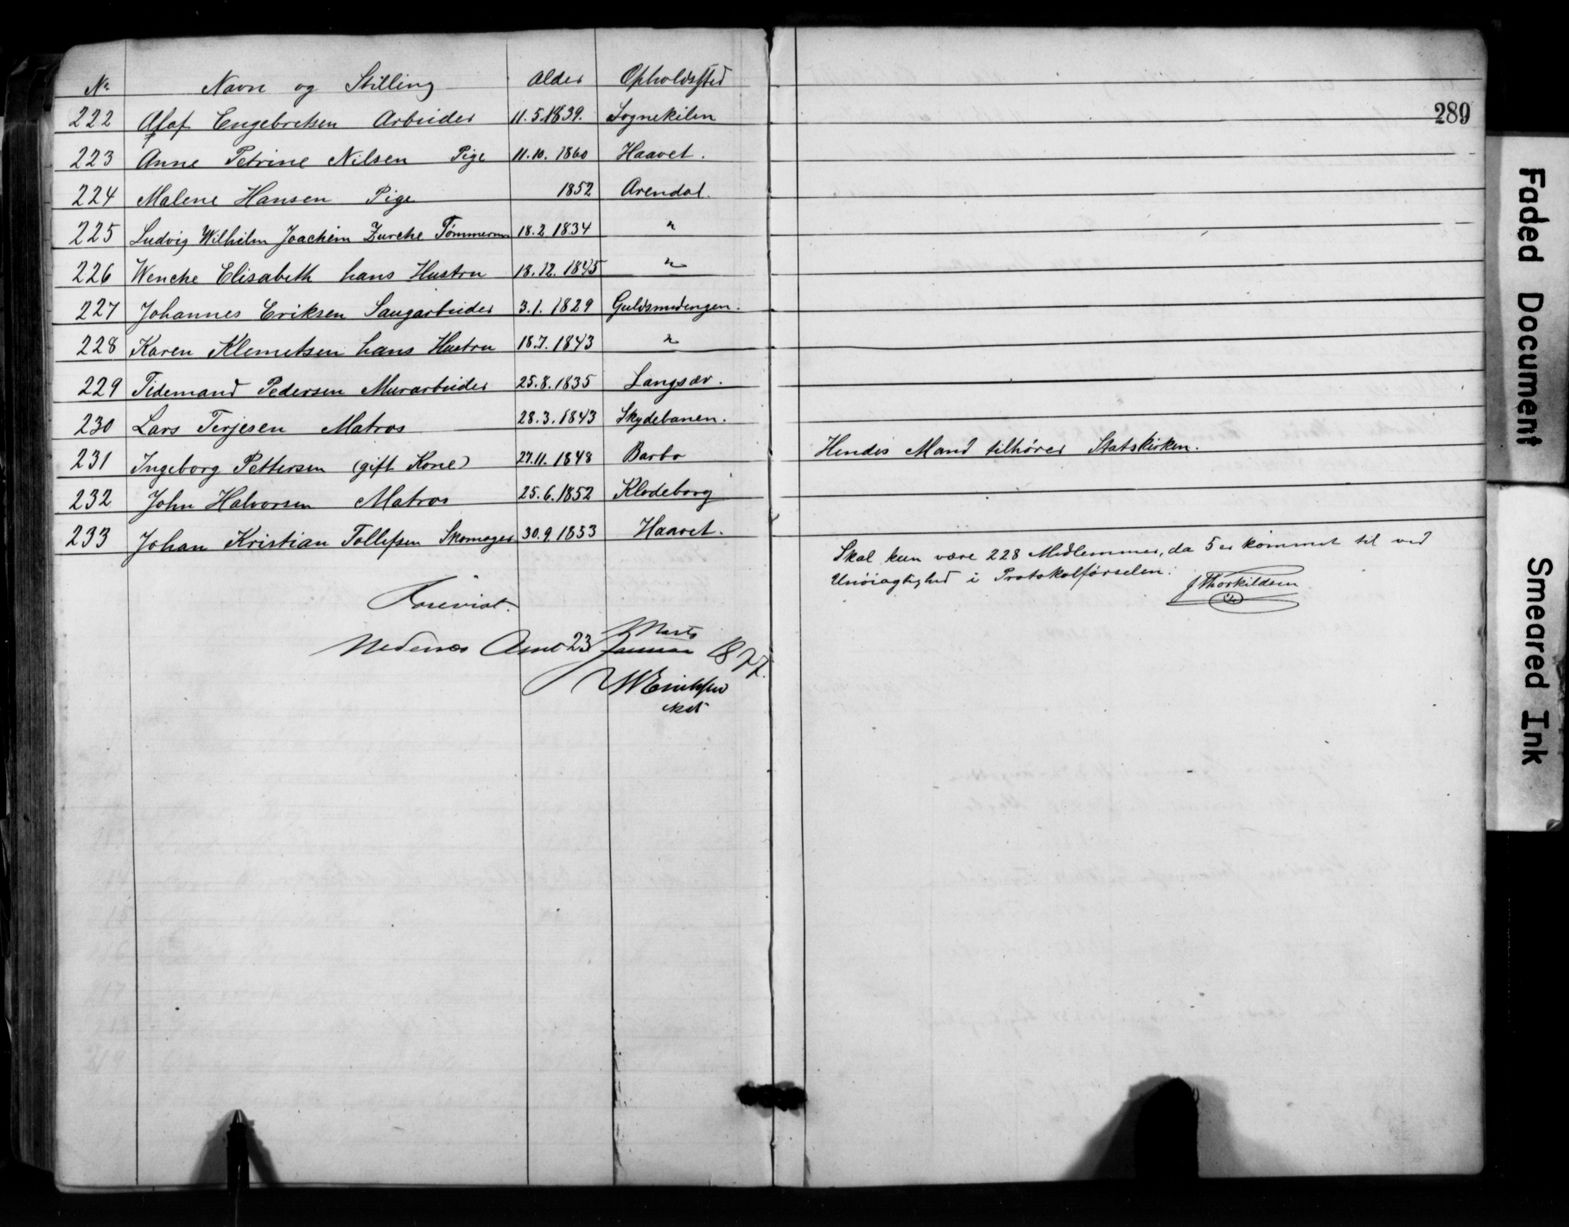 No Navn og Stilling Alder Opholdssted
289
222 Olaf Engebretsen Arbeider 11.5.1839. Sognekilen
223 Anne Petrine Nilsen Pige 11.10.1860 Haavet.
224 Malene Hansen Pige 1852 Arendal.
225 Ludvig Wilhelm Joachim Zurche Tømmerm 18.2 1834 "
226 Wenche Elisabeth hans Hustru 18.12.1845 "
227 Johannes Eriksen Saugarbeider 3.1.1829 Guldsmedengen.
228 Karen Klemetsen hans Hustru 18.7.1843 "
229 Tidemand Pedersen Murarbeider 25.8.1835 Langsæv.
230 Lars Terjesen Matros 28.3.1843 Skydebanen.
231 Ingeborg Pettersen (gift Kone) 27.11.1848 Barbo Hendes Mand tilhører Statskirken.
232 John Halvorsen Matros 25.6.1852 Klødeborg
233 Johan Kristian Tollefsen Skomager 30.9.1853 Haavet.
Skal kun være 228 Medlemmer, da 5 er kommet til ved
Unøiagtighed i Protokolførselen.
J Thorkildsen
Foreviist.
Nedenæs Amt 23 Marts 1877.
Faded Document
Smeared Ink